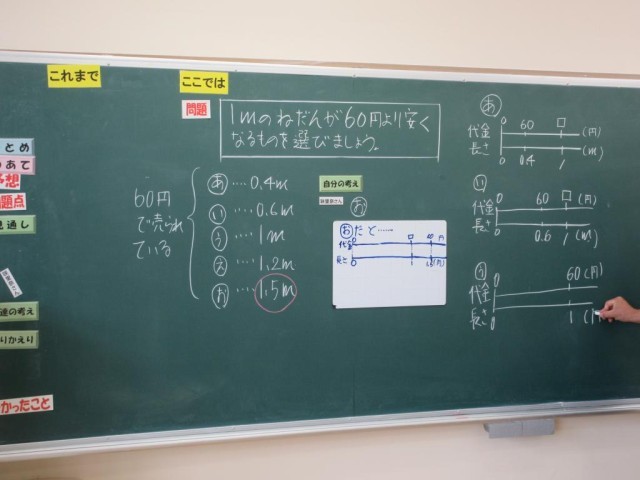 これまで
ここでは
問題
1mのねだんが60円より安く
なるものを選びましょう。
とめ
めあて
予想
題点
見通し
達の考え
りかえり
かったこと
60円
で売られ
ている
あ‥‥0.4m
い‥‥0.6m
う‥‥1m
え‥‥1.2m
お‥‥1.5m
自分の考え
お
おだと‥‥‥
代金 0 □ 60 円
長さ 0 1 1.5(m)
あ
代金 0 60 □ (円)
長さ 0 0.4 1 (m)
い
代金 0 60 □ (円)
長さ 0 0.6 1 (m)
う
代金 0 60 (円)
長さ 0 1